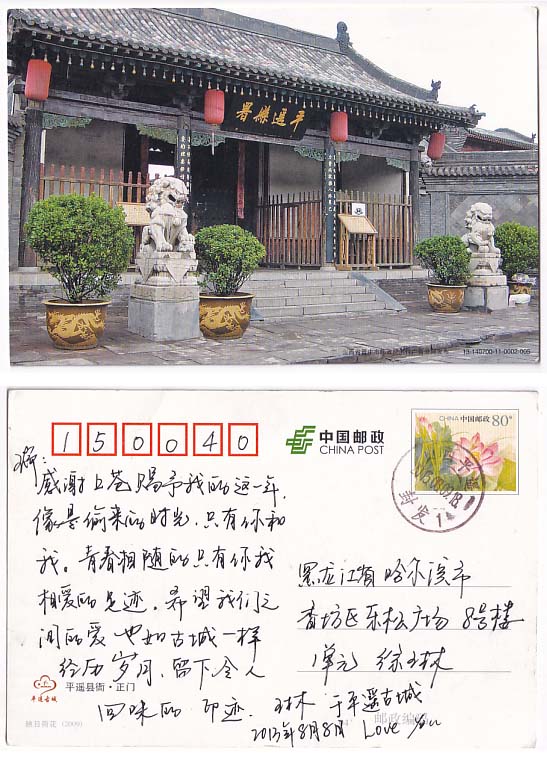 平遥縣署
山西省晋中市邮政局
13-140700-11-0002-005
150040
中国邮政
CHINA POST
CHINA 中国邮政 80分
平遥
封发 1
感谢上苍赐予我的这一年,
像是偷来的时光,只有你和
我。青春相随的只有你我
相爱的足迹。希望我们之
间的爱 也如古城一样
经历岁月,留下令人
回味的 印迹.
于平遥古城
2013年8月8月 Love You
黑龙江省哈尔滨市
香坊区乐松广场 8号楼
1单元 徐玉林
平遥古城
平遥县衙·正门
映日荷花 (2009)
邮政编码